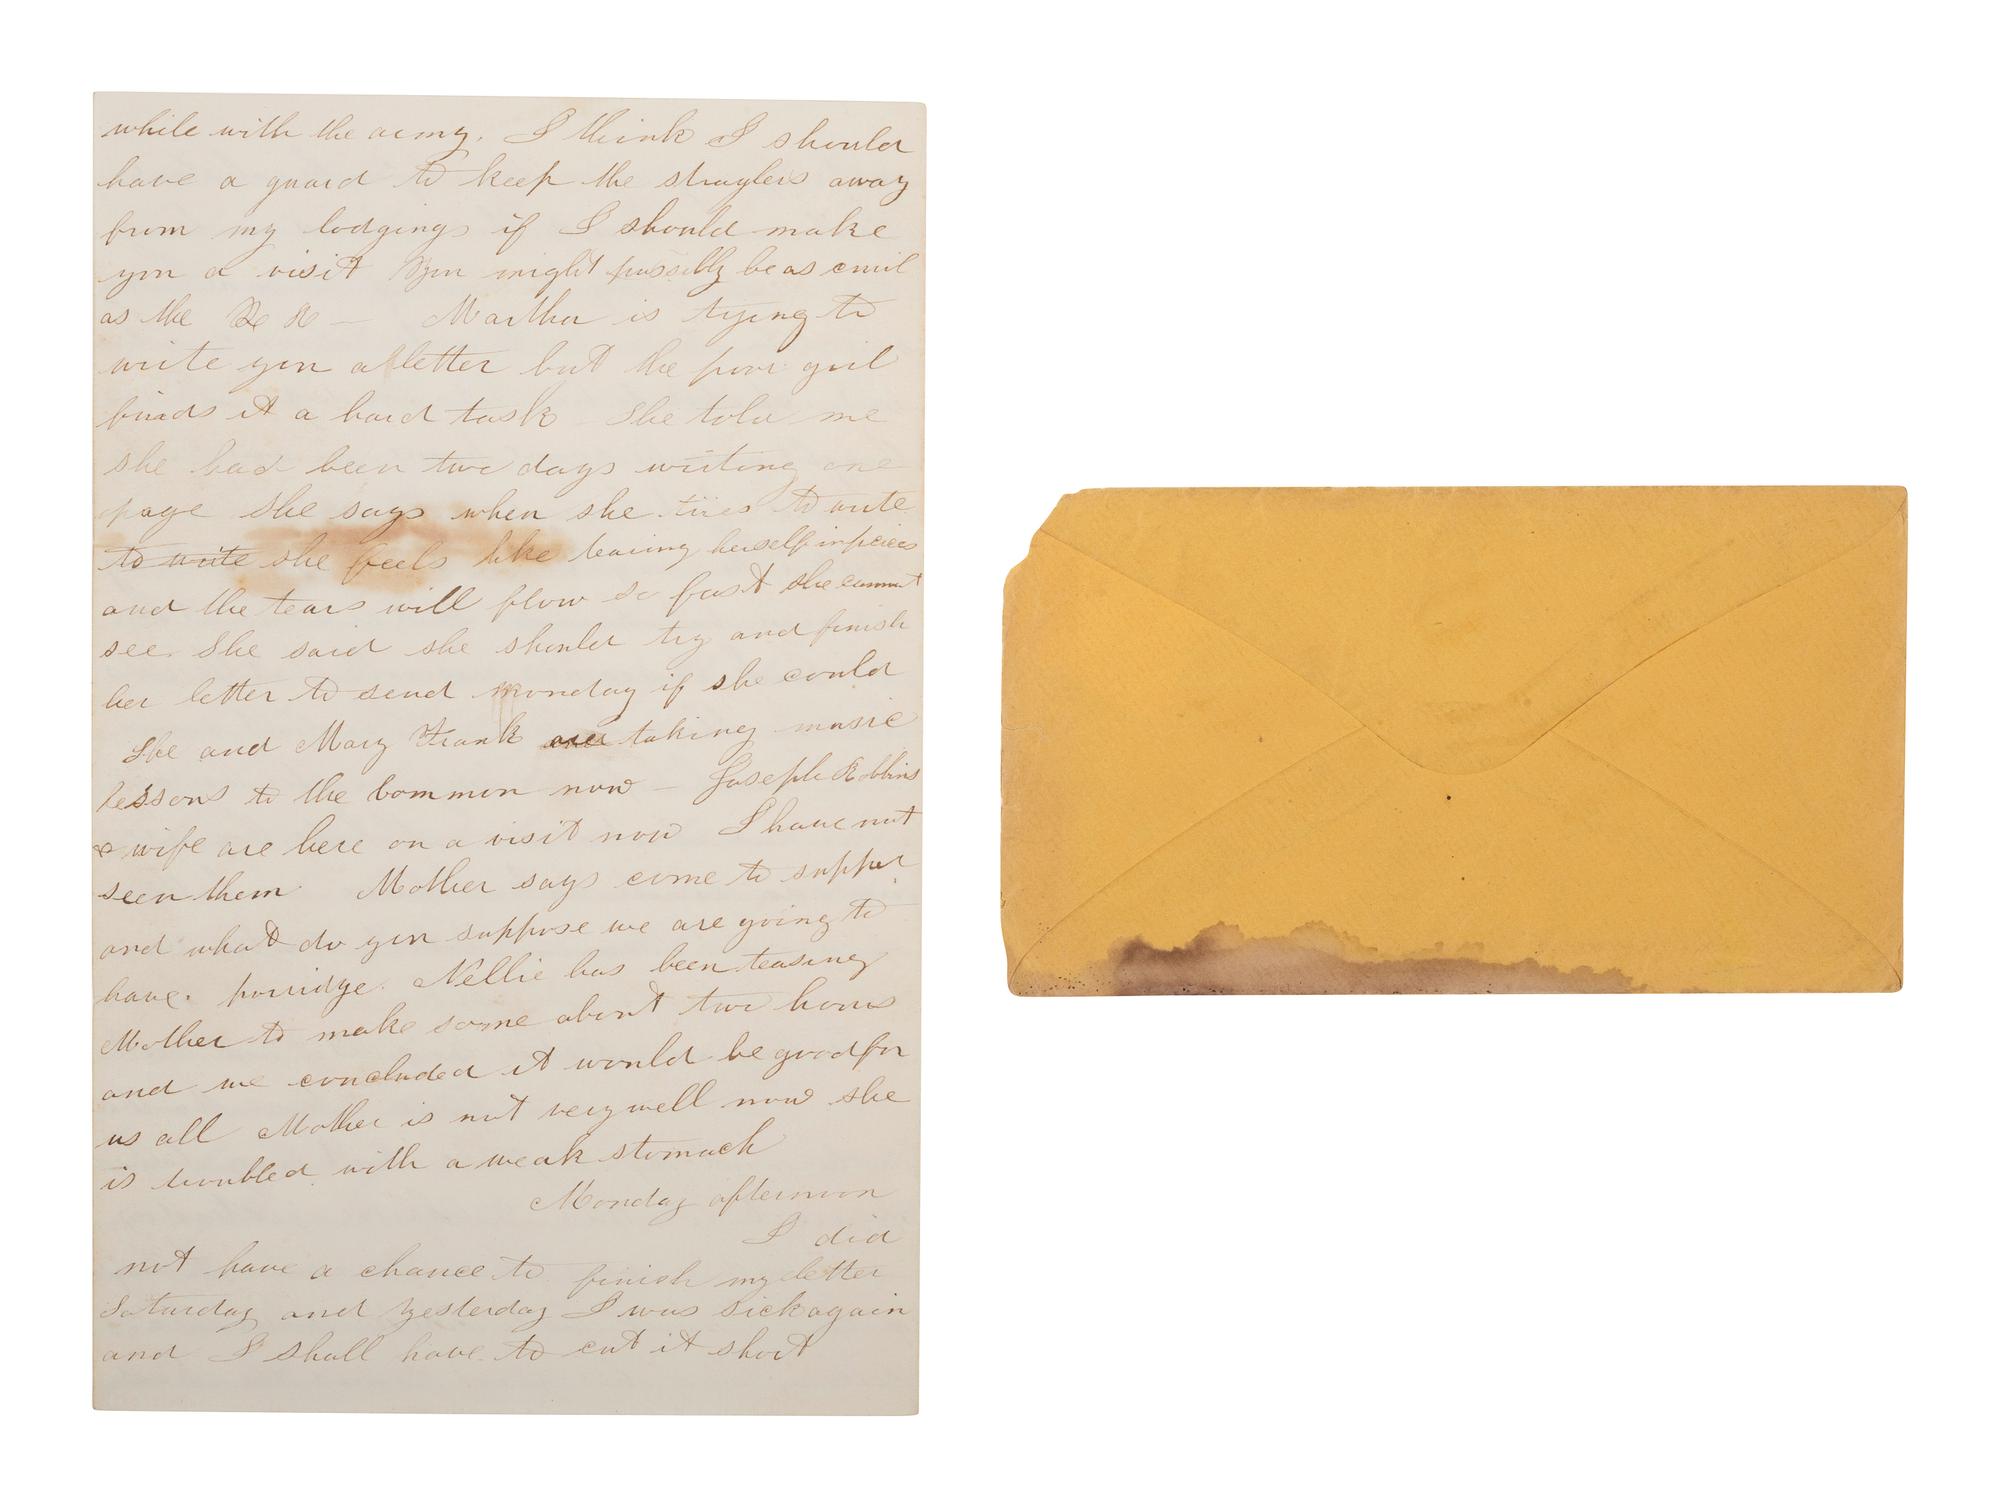 while with the army. I think I should
have a guard to keep the straglers away
from my lodgings if I should make
you a visit You might possibly be as civil
as the — Martha is trying to
write you a letter but the poor girl
finds it a hard task She told me
she had been two days writing one
page She says when she tries to write
to write she feels like tearing herself in peices
and the tears will flow so fast she cannot
see. She said she should try and finish
her letter to send Monday if she could
She and Mary Frank are taking music
lessons to the common now — Joseph Robbins
& wife are here on a visit now I have not
seen them Mother says come to supper
and what do you suppose we are going to
have. porridge. Nellie has been teasing
Mother to make some about two hours
and we concluded it would be good for
us all Mother is not very well now she
is troubled with a weak stomach
Monday afternoon
I did
not have a chance to finish my letter
Saturday and yesterday I was sick again
and I shall have to cut it short